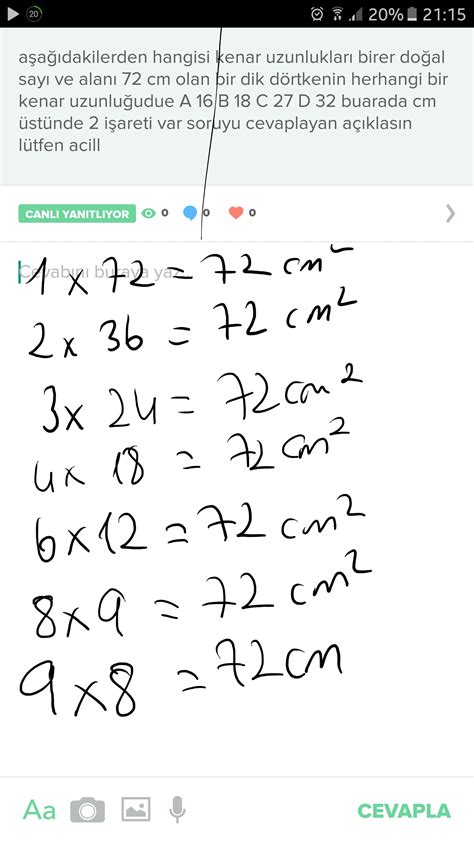 20 20% 21:15
aşağıdakilerden hangisi kenar uzunlukları birer doğal
sayı ve alanı 72 cm olan bir dik dörtkenin herhangi bir
kenar uzunluğudue A 16 B 18 C 27 D 32 buarada cm
üstünde 2 işareti var soruyu cevaplayan açıklasın
lütfen acill
CANLI YANITLIYOR 0 0 0
Cevabını buraya yaz
1 x 72 = 72 cm²
2 x 36 = 72 cm²
3 x 24 = 72 cm²
4 x 18 = 72 cm²
6 x 12 = 72 cm²
8 x 9 = 72 cm²
9 x 8 = 72 cm
Aa CEVAPLA